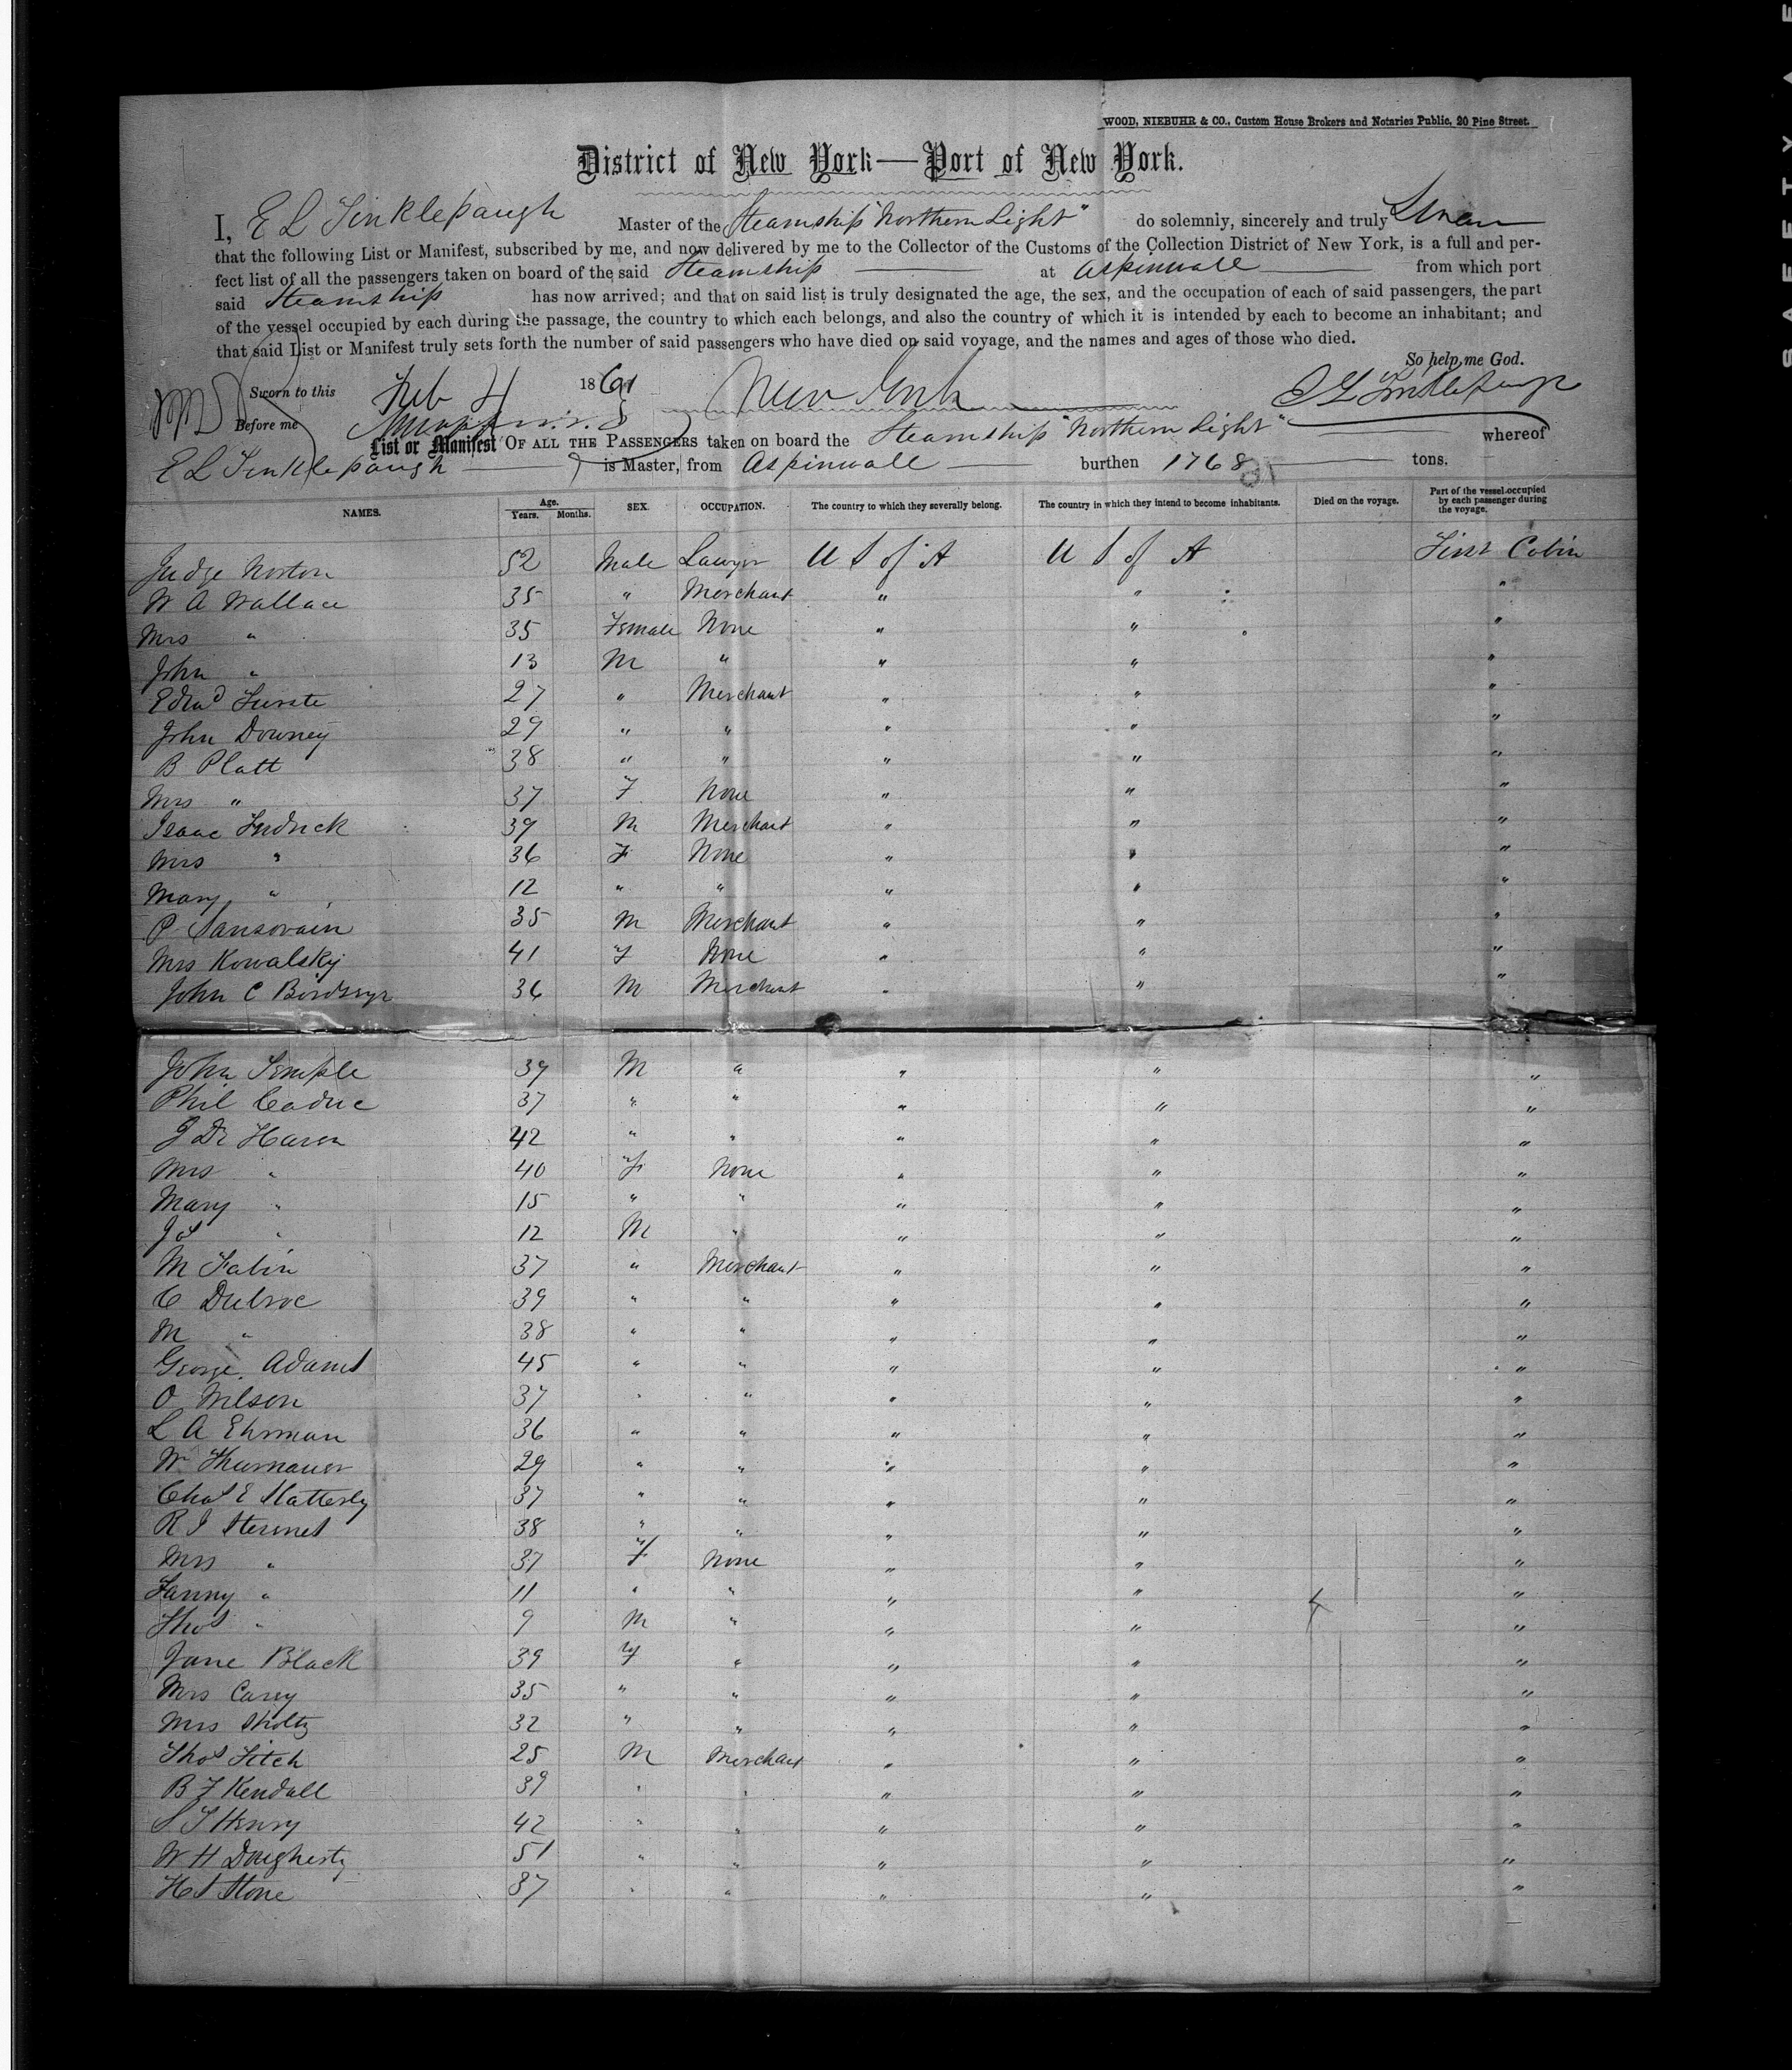 WOOD, NIEBUHR & CO., Custom House Brokers and Notaries Public, 20 Pine Street.
District of New York—Port of New York.
I, E L Tinklepaugh Master of the Steamship "Northern Light" do solemnly, sincerely and truly Swear
that the following List or Manifest, subscribed by me, and now delivered by me to the Collector of the Customs of the Collection District of New York, is a full and per-
fect list of all the passengers taken on board of the said Steamship at Aspinwall from which port
said Steamship has now arrived; and that on said list is truly designated the age, the sex, and the occupation of each of said passengers, the part
of the vessel occupied by each during the passage, the country to which each belongs, and also the country of which it is intended by each to become an inhabitant; and
that said List or Manifest truly sets forth the number of said passengers who have died on said voyage, and the names and ages of those who died.
So help me God.
Sworn to this Feb 4 1861 New York E L Tinklepaugh
Before me
List or Manifest OF ALL THE PASSENGERS taken on board the Steamship "Northern Light" whereof
E L Tinklepaugh is Master, from Aspinwall burthen 1768 tons.
NAMES. Age. Years. Months. SEX. OCCUPATION. The country to which they severally belong. The country in which they intend to become inhabitants. Died on the voyage. Part of the vessel occupied by each passenger during the voyage.
Judge Norton 52 Male Lawyer U S of A U S of A First Cabin
W A Wallace 35 " Merchant " " "
Mrs " 35 Female None " " "
John " 13 M " " " "
Edwd Furste 27 " Merchant " " "
John Downey 29 " " " " "
B Platt 38 " " " " "
Mrs " 37 F None " " "
Isaac 39 M Merchant " " "
Mrs " 36 F None " " "
Mary " 12 " " " " "
P Sansovain 35 M Merchant " " "
Mrs Kowalsky 41 F None " " "
John C 36 M Merchant " " "
John Temple 39 M " " " "
Phil Caduc 37 " " " " "
J De Haven 42 " " " " "
Mrs " 40 F None " " "
Mary " 15 " " " " "
Jos " 12 M " " " "
M Fabin 37 " Merchant " " "
C Dubroc 39 " " " " "
M " 38 " " " " "
George Adams 45 " " " " "
O Wilson 37 " " " " "
L A Ehrman 36 " " " " "
W Thurnauer 29 " " " " "
Chas E Slatterly 37 " " " " "
R J 38 " " " " "
Mrs " 37 F None " " "
Fanny " 11 " " " " "
Thos " 9 M " " " "
Jane Black 39 F " " " "
Mrs Carey 35 " " " " "
Mrs Sholtz 32 " " " " "
Thos Fitch 25 M Merchant " " "
B F Kendall 39 " " " " "
S T Henry 42 " " " " "
W H Dougherty 51 " " " " "
H S Stone 37 " " " " "